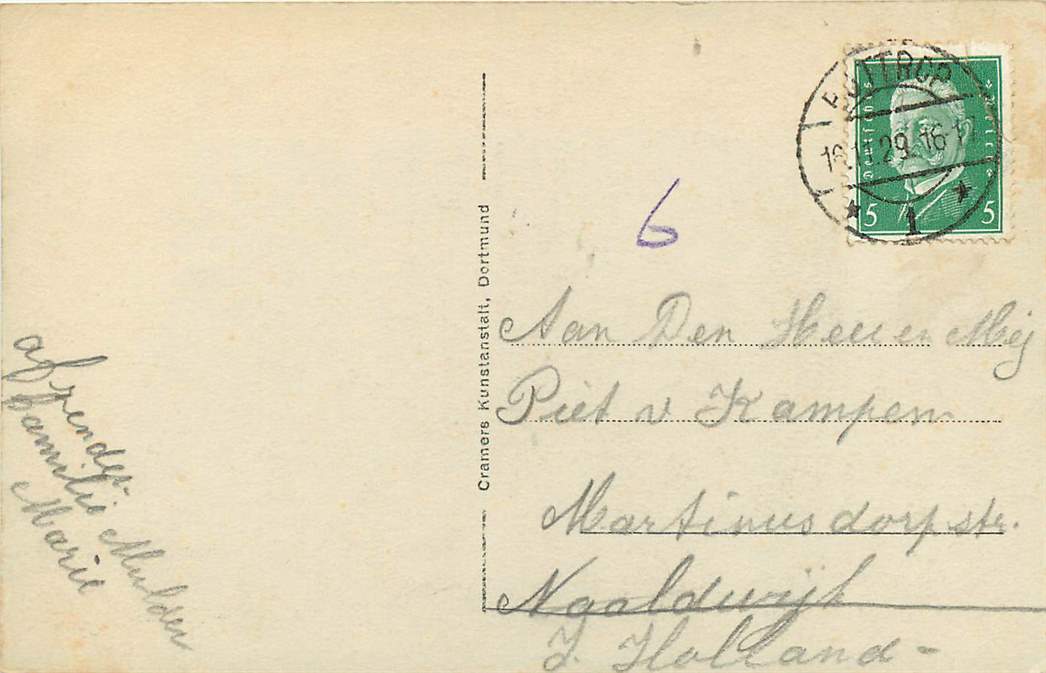 BOTTROP
16.11.29.16-17
* 1 *
Deutsches Reich
5 5
6
Cramers Kunstanstalt, Dortmund
Aan Den Heer en Mej
Piet v Kampen
Martinusdorpstr.
Naaldwijk
Z. Holland -
afzender
Familie Mulder
Marie